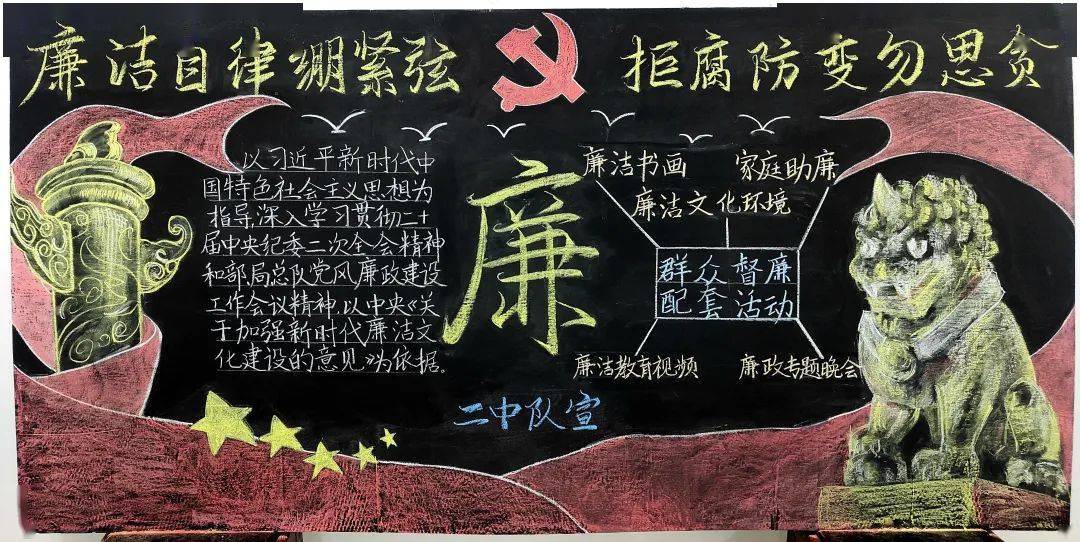 廉洁自律绷紧弦 拒腐防变勿思贪
以习近平新时代中
国特色社会主义思想为
指导,深入学习贯彻二十
届中央纪委二次全会精神
和部局总队党风廉政建设
工作会议精神,以中央《关
于加强新时代廉洁文
化建设的意见》为依据。
廉
廉洁书画
家庭助廉
廉洁文化环境
群众督廉
配套活动
廉洁教育视频
廉政专题晚会
二中队宣